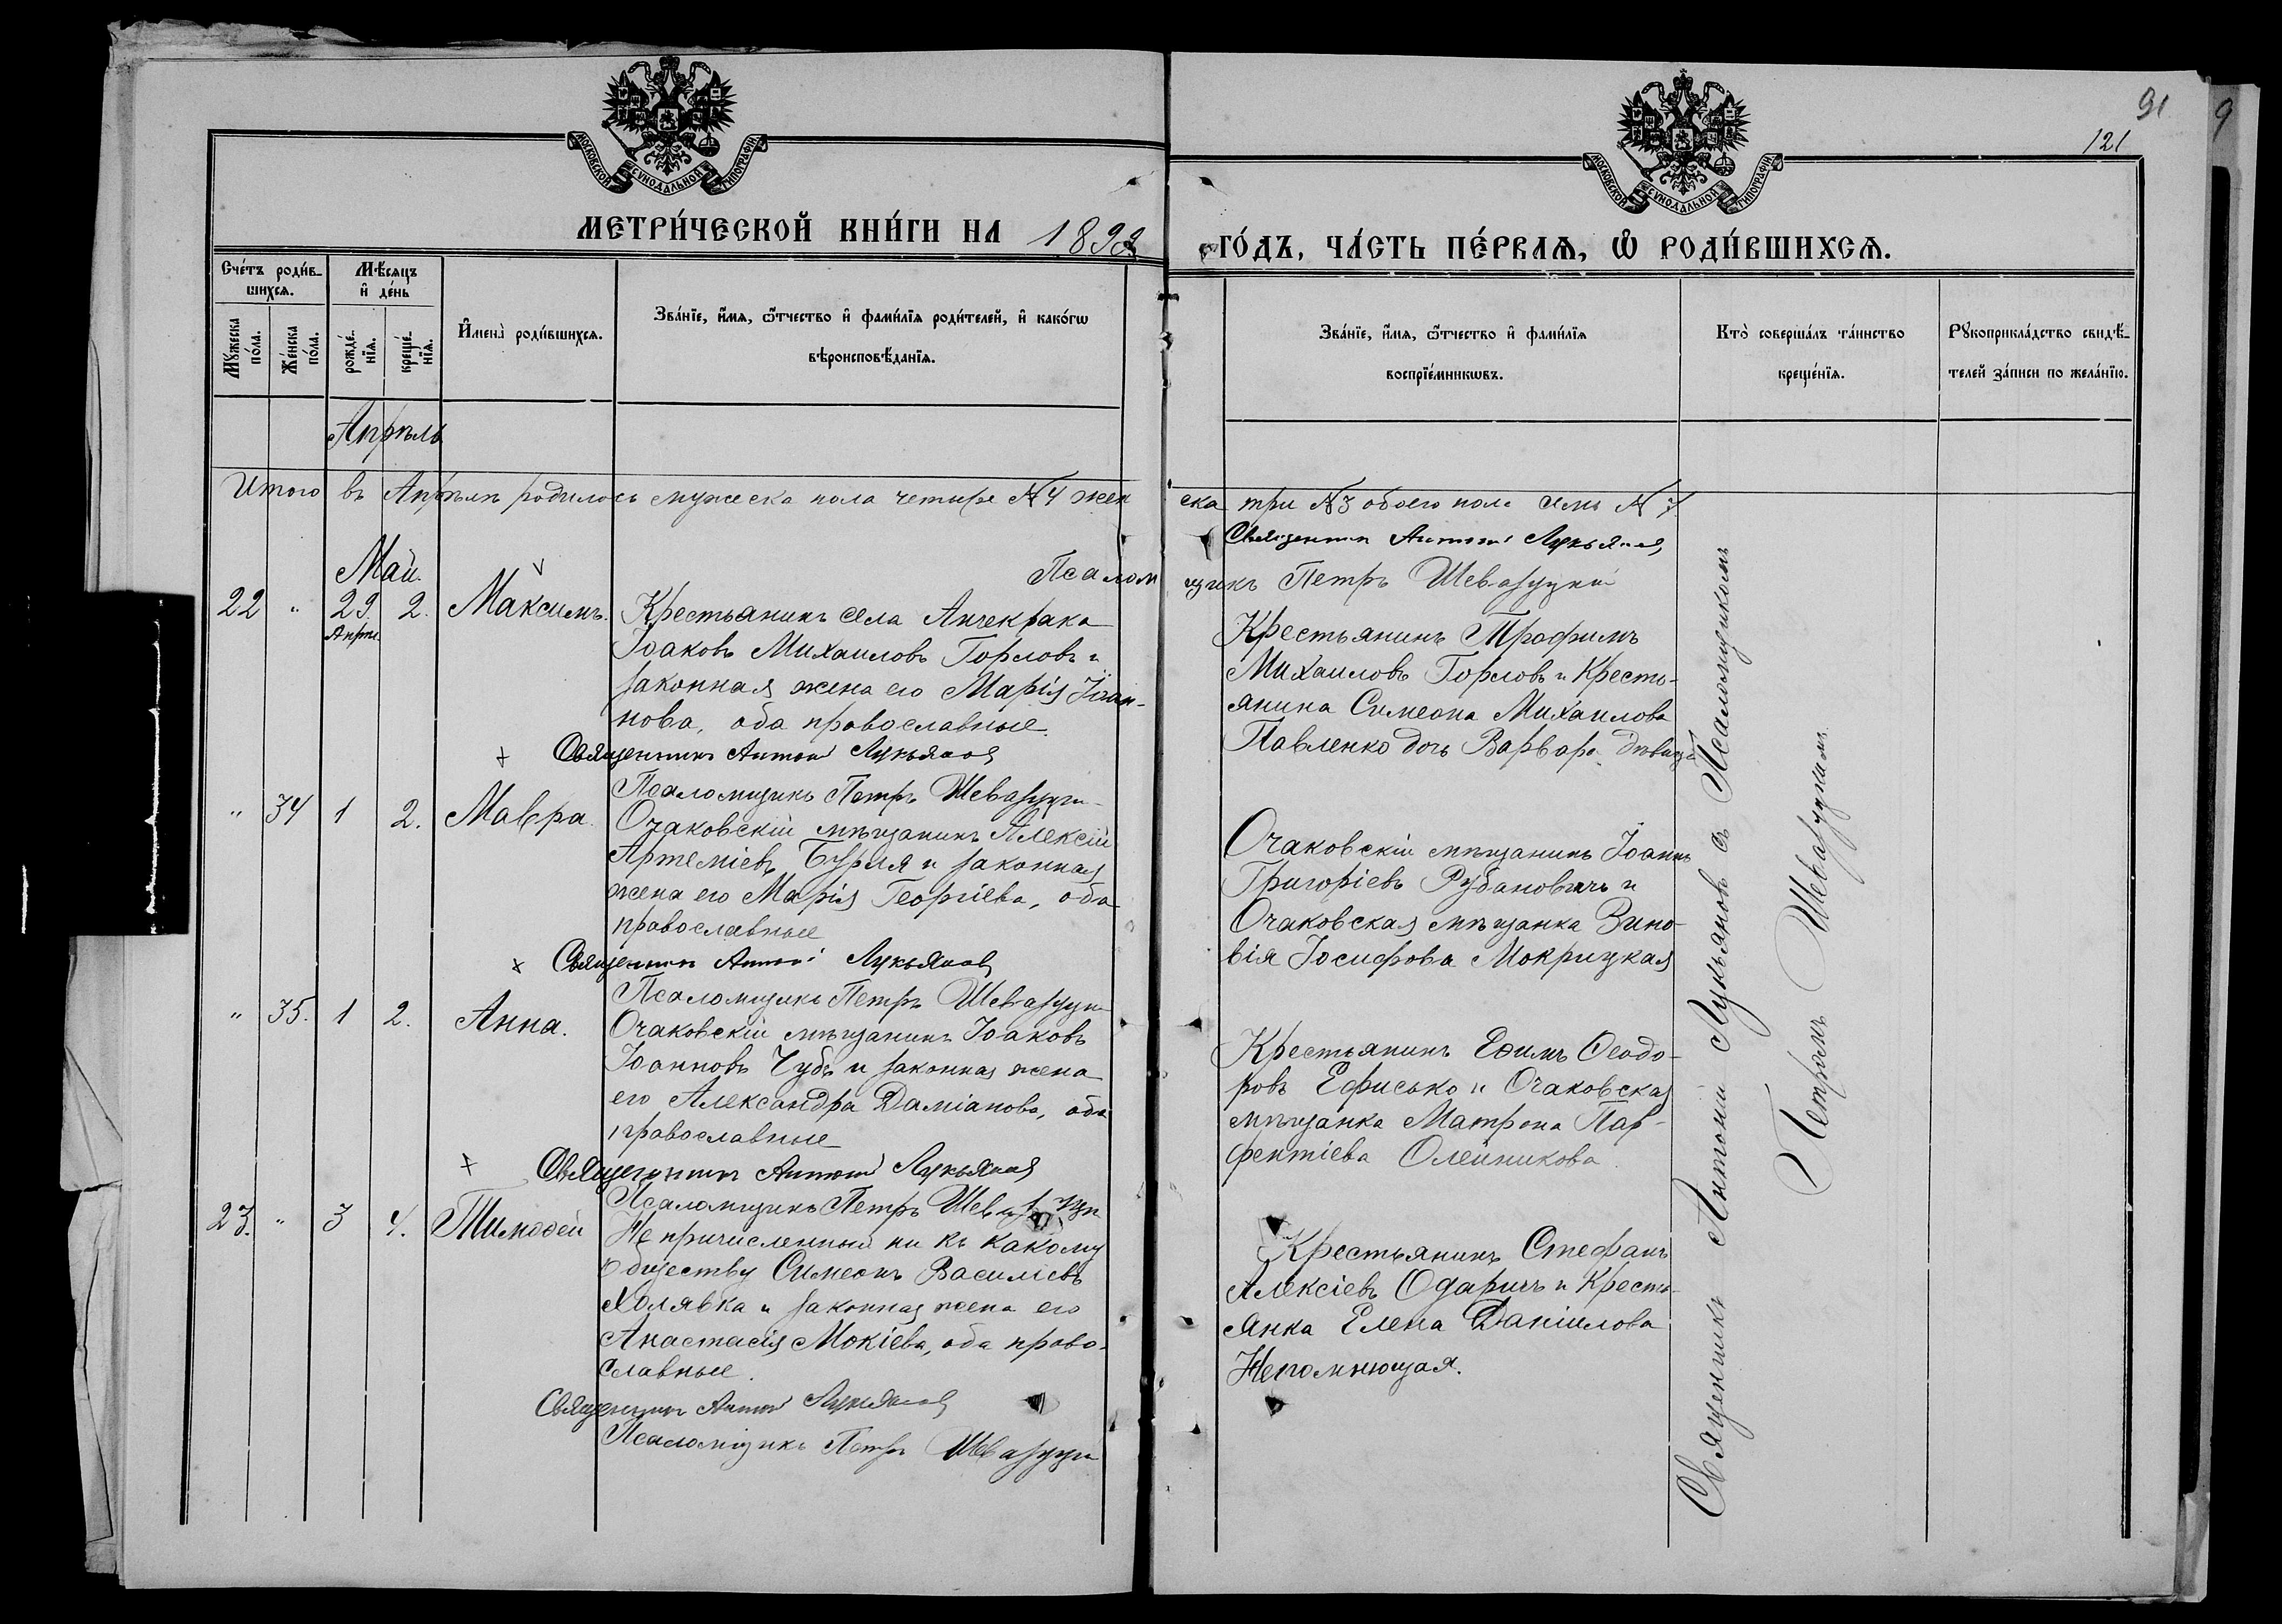 91
9
121
МОСКОВСКОЙ СѴНОДАЛЬНОЙ ТИПОГРАФІИ
МОСКОВСКОЙ СѴНОДАЛЬНОЙ ТИПОГРАФІИ
МЕТРИ́ЧЕСКОЙ КНИ́ГИ НА 1898
ГО́ДЪ, ЧА́СТЬ ПЕ́РВАѦ, Ѡ҆ РОДИ́ВШИХСѦ.
Сче́тъ роди́в-
шихсѧ.
Мѣ́сѧцъ
и҆ де́нь
Мꙋ́жеска
по́ла.
Же́нска
по́ла.
рожде́-
нїѧ.
креще́-
нїѧ.
И҆мена̀ роди́вшихсѧ.
Зва́нїе, и҆́мѧ, ѻ҆́тчество и҆ фами́лїѧ роди́телей, и҆ како́гѡ
вѣроисповѣ́данїѧ.
Зва́нїе, и҆́мѧ, ѻ҆́тчество и҆ фами́лїѧ
воспрїе́мникѡвъ.
Кто̀ соверша́лъ та́инство
креще́нїѧ.
Рꙋкоприкла́дство свидѣ́-
телей за́писи по жела́нїю.
Апрѣль
Итого въ Апрѣлѣ родилось мужеска пола четыре № 4 жен
ска три № 3 обоего пола семь № 7
Священникъ Антоній Лукьяновъ
Май.
Псалом
щикъ Петръ
22 " 29. 2. Максимъ.
Апрѣ.
Крестьянинъ села Анчекрака
Іоаковъ Михаиловъ Горловъ и
законная жена его Марія Іоан-
нова, оба православные.
Священникъ Антоній Лукьяновъ
Псаломщикъ Петръ
Крестьянинъ Трофимъ
Михаиловъ Горловъ и Кресть-
янина Симеона Михаилова
Павленко дочь Варвара дѣвица
" 34 1 2. Мавра.
Очаковскій мѣщанинъ Алексій
Артеміевъ и законная
жена его Марія Георгіева, оба
православные
Священникъ Антоній Лукьяновъ
Псаломщикъ Петръ
Очаковскій мѣщанинъ Іоаннъ
Григоріевъ Рубановичъ и
Очаковская мѣщанка Зино-
вія Іосифова Мокрицкая
" 35. 1 2. Анна.
Очаковскій мѣщанинъ Іоаковъ
Іоанновъ Чубъ и законная жена
его Александра Даміанова, оба
православные
Священникъ Антоній Лукьяновъ
Псаломщикъ Петръ
Крестьянинъ Еѳимъ Ѳеодо-
ровъ Ефисько и Очаковская
мѣщанка Матрона Пар-
фентіева Олейникова
23. " 3 4. Тимоѳей
Не причисленный ни къ какому
обществу Симеонъ Василіевъ
Холявка и законная жена его
Анастасія Мокіева, оба право-
славные.
Священникъ Антоній Лукьяновъ
Псаломщикъ Петръ
Крестьянинъ Стефанъ
Алексіевъ Одаричъ и Кресть-
янка Елена Даніилова
Непомнющая.
Священникъ Антоній Лукьяновъ съ Псаломщикомъ
Петромъ